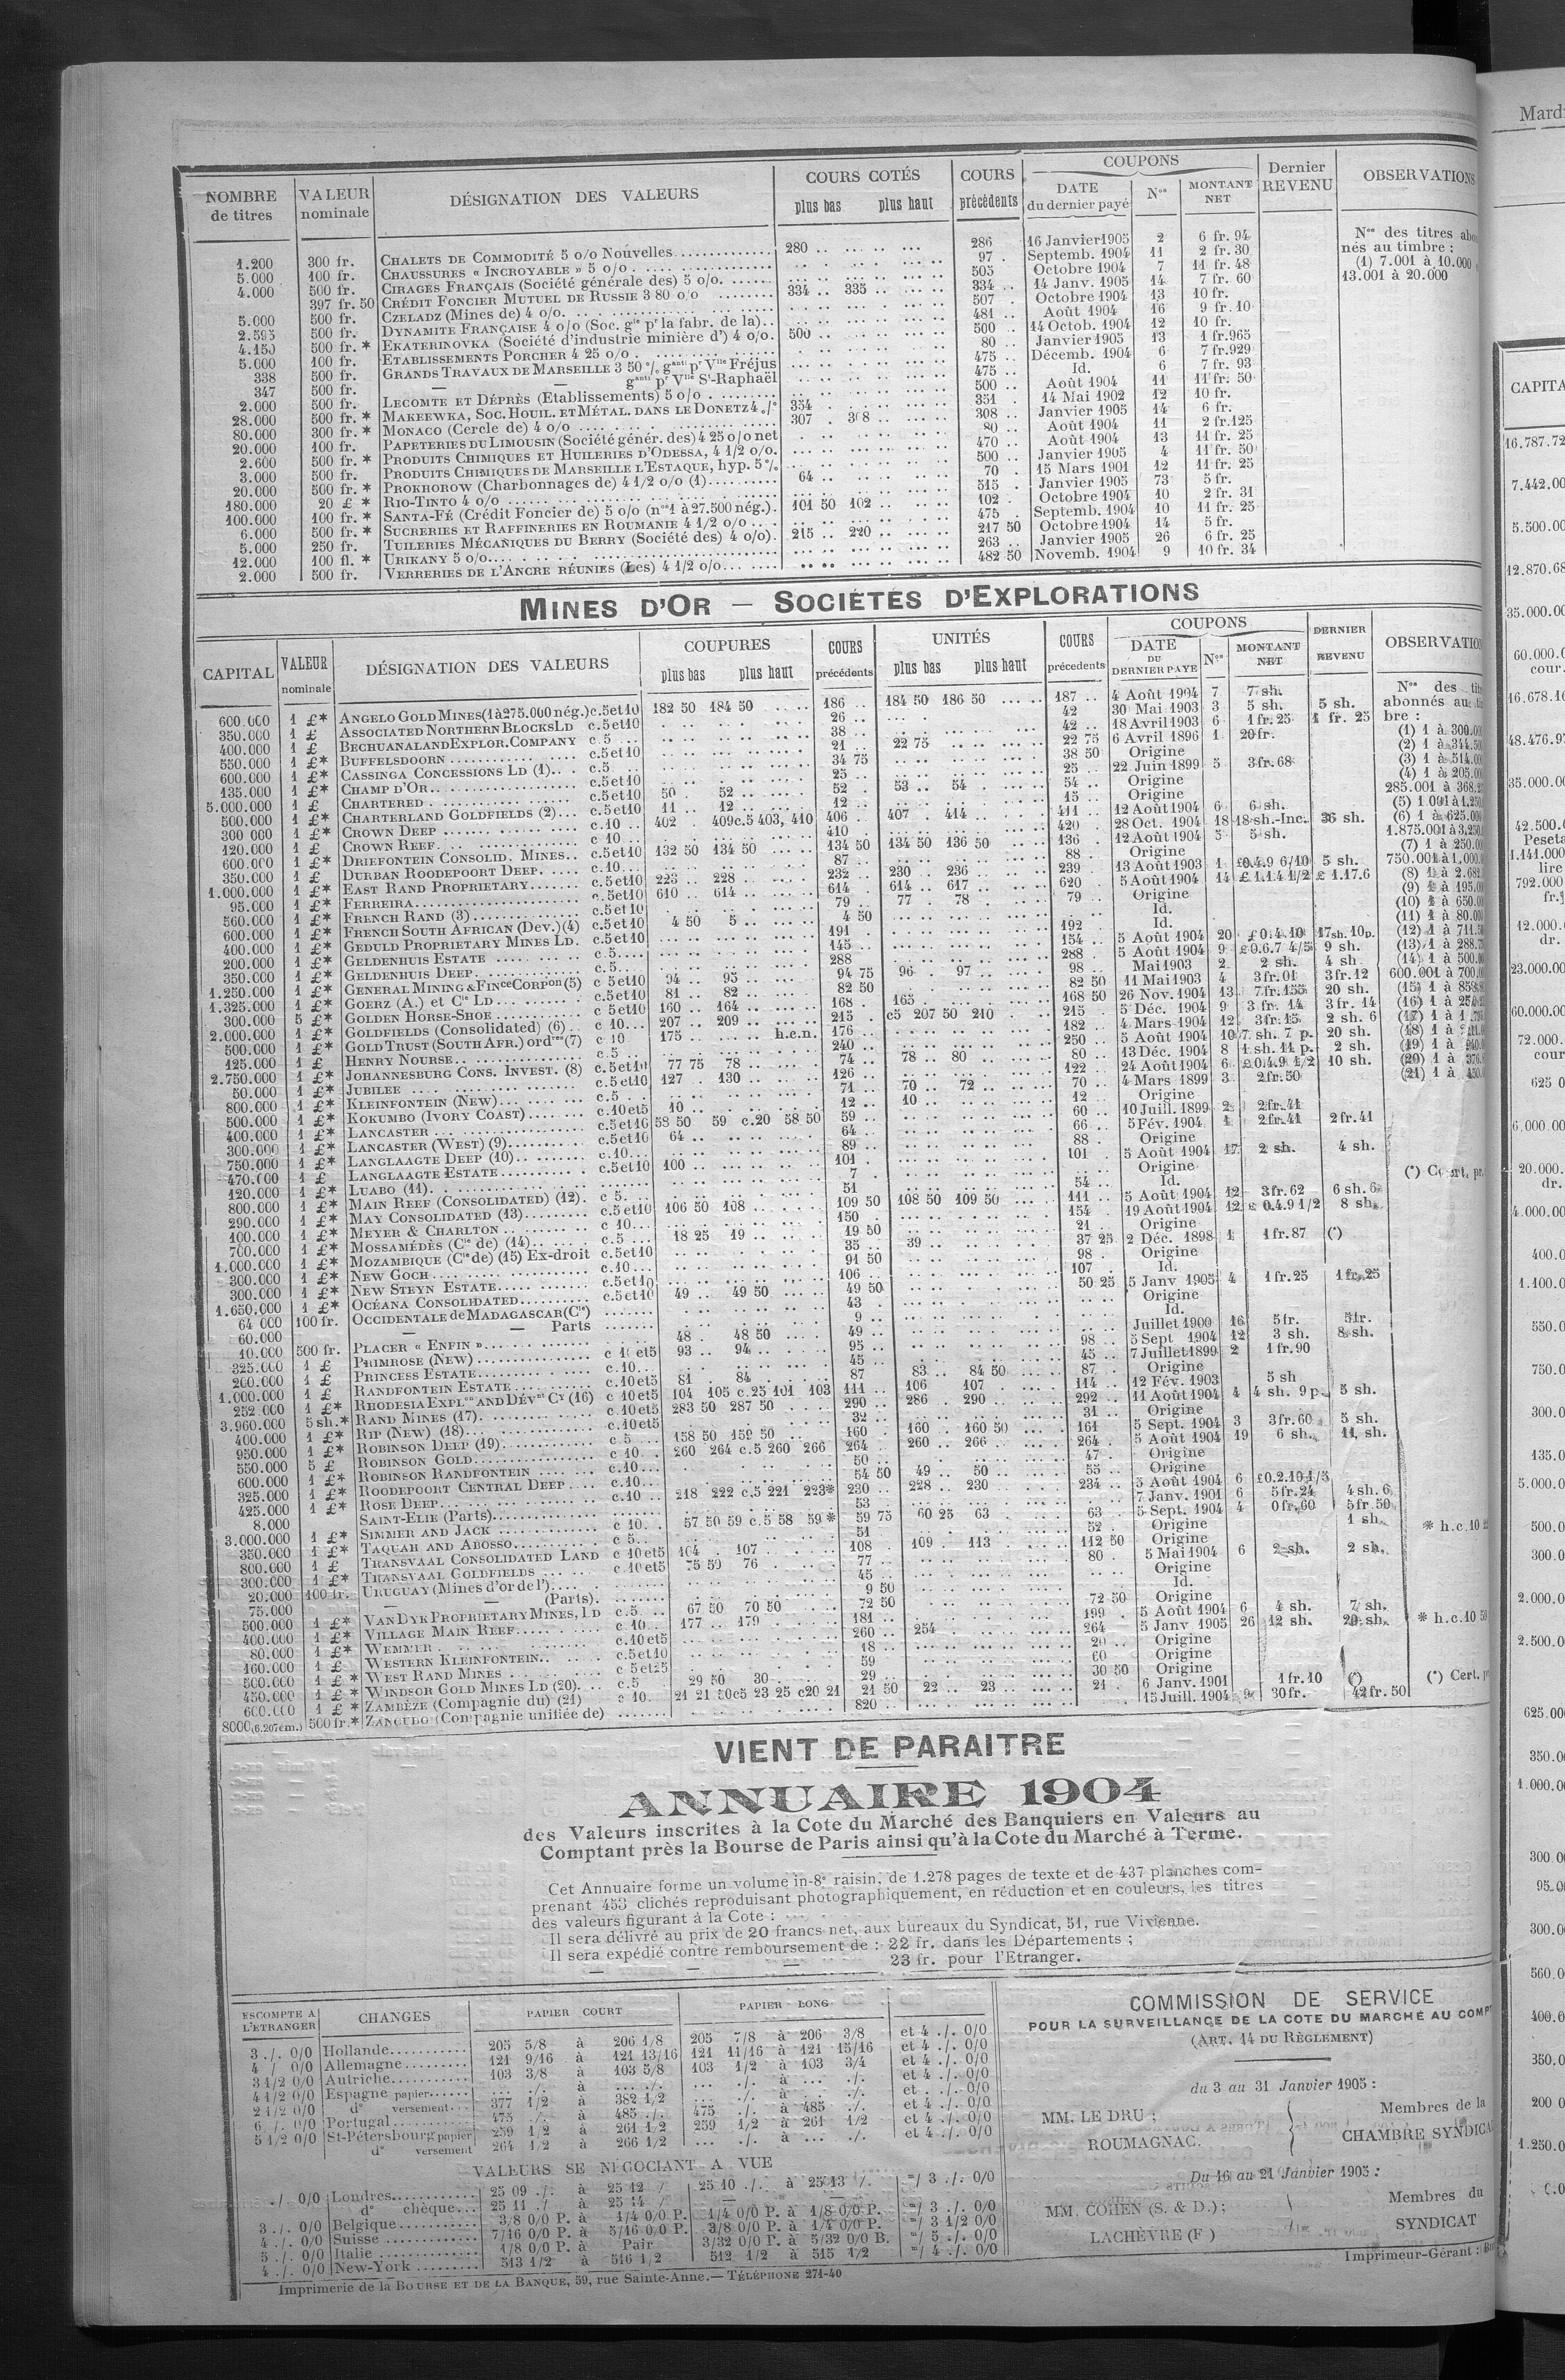 NOMBRE de titres | VALEUR nominale | DÉSIGNATION DES VALEURS | COURS COTÉS plus bas plus haut | COURS précédents | COUPONS DATE du dernier payé Nos MONTANT NET | Dernier REVENU | OBSERVATIONS
1.200 300 fr. CHALETS DE COMMODITÉ 5 o/o Nouvelles 280 .. 286 16 Janvier 1905 2 6 fr. 94
5.000 100 fr. CHAUSSURES « INCROYABLE » 5 o/o 97 . Septemb. 1904 11 2 fr. 30
4.000 500 fr. CIRAGES FRANÇAIS (Société générale des) 5 o/o. 505 Octobre 1904 7 11 fr. 48
397 fr. 50 CRÉDIT FONCIER MUTUEL DE RUSSIE 3 80 o/o 334 .. 335 .. 334 .. 14 Janv. 1905 14 7 fr. 60
5.000 500 fr. CZELADZ (Mines de) 4 o/o. 507 . Octobre 1904 13 10 fr.
2.595 500 fr. DYNAMITE FRANÇAISE 4 o/o (Soc. gle pr la fabr. de la).. 481 .. Août 1904 16 9 fr. 10
4.150 500 fr. * EKATERINOVKA (Société d'industrie minière d') 4 o/o. 500 .. 500 .. 14 Octob. 1904 12 10 fr.
5.000 100 fr. ETABLISSEMENTS PORCHER 4 25 o/o 80 .. Janvier 1905 13 1 fr.965
338 500 fr. GRANDS TRAVAUX DE MARSEILLE 3 50 % ganti pr Vlle Fréjus 475 .. Décemb. 1904 6 7 fr.929
347 500 fr. — — ganti pr Vlle St-Raphaël 475 .. Id. 6 7 fr. 93
2.000 500 fr. LECOMTE ET DÉPRÈS (Etablissements) 5 o/o 500 .. Août 1904 11 11 fr. 50
28.000 500 fr. * MAKEEWKA, SOC. HOUIL. ET MÉTAL. DANS LE DONETZ 4 % 354 . 351 . 14 Mai 1902 12 10 fr.
80.000 300 fr. * MONACO (Cercle de) 4 o/o 307 . 308 .. 308 .. Janvier 1905 14 6 fr.
20.000 100 fr. PAPETERIES DU LIMOUSIN (Société génér. des) 4 25 o/o net 80 .. Août 1904 11 2 fr.125
2.600 500 fr. * PRODUITS CHIMIQUES ET HUILERIES D'ODESSA, 4 1/2 o/o. 470 .. Août 1904 13 11 fr. 25
3.000 500 fr. PRODUITS CHIMIQUES DE MARSEILLE L'ESTAQUE, hyp. 5 % 500 .. Janvier 1905 4 11 fr. 50
20.000 500 fr. * PROKHOROW (Charbonnages de) 4 1/2 o/o (1) 64 .. 70 . 15 Mars 1901 12 11 fr. 25
180.000 20 £ * RIO-TINTO 4 o/o 515 . Janvier 1905 73 5 fr.
100.000 100 fr. * SANTA-FÉ (Crédit Foncier de) 5 o/o (nos 1 à 27.500 nég.). 101 50 102 .. 102 . Octobre 1904 10 2 fr. 31
6.000 500 fr. * SUCRERIES ET RAFFINERIES EN ROUMANIE 4 1/2 o/o 475 . Septemb. 1904 10 11 fr. 25
5.000 250 fr. TUILERIES MÉCANIQUES DU BERRY (Société des) 4 o/o). 215 .. 220 .. 217 50 Octobre 1904 14 5 fr.
12.000 100 fl. * URIKANY 5 o/o 263 .. Janvier 1905 26 6 fr. 25
2.000 500 fr. VERRERIES DE L'ANCRE RÉUNIES (Les) 4 1/2 o/o 482 50 Novemb. 1904 9 10 fr. 34
Nos des titres
nés au timbre :
(1) 7.001 à 10.000
13.001 à 20.000
MINES D'OR — SOCIÉTÉS D'EXPLORATIONS
CAPITAL | VALEUR nominale | DÉSIGNATION DES VALEURS | COUPURES plus bas plus haut | COURS précédents | UNITÉS plus bas plus haut | COURS précedents | COUPONS DATE DU DERNIER PAYÉ Nos MONTANT NET | DERNIER REVENU
600.000 1 £* ANGELO GOLD MINES (1 à 275.000 nég.) c.5et10 182 50 184 50 186 .. 184 50 186 50 187 .. 4 Août 1904 7 7 sh. 5 sh.
350.000 1 £ ASSOCIATED NORTHERN BLOCKS LD c.5et10 26 .. 42 30 Mai 1903 3 5 sh. 1 fr. 25
400.000 1 £ BECHUANALAND EXPLOR. COMPANY c.5 38 .. 42 .. 18 Avril 1903 6 1 fr. 25
550.000 1 £* BUFFELSDOORN c.5et10 21 .. 22 75 22 75 6 Avril 1896 1 20 fr.
600.000 1 £* CASSINGA CONCESSIONS LD (1) c.5 34 75 38 50 Origine
135.000 1 £* CHAMP D'OR c.5et10 25 .. 25 .. 22 Juin 1899 5 3 fr. 68
5.000.000 1 £ CHARTERED c.5et10 50 . 52 .. 52 . 53 .. 54 . 54 .. Origine
500.000 1 £* CHARTERLAND GOLDFIELDS (2) c.5et10 11 .. 12 .. 12 .. 15 .. Origine
300 000 1 £* CROWN DEEP c.10 402 . 409 c.5 403, 410 406 .. 407 . 414 .. 411 .. 12 Août 1904 6 6 sh.
120.000 1 £ CROWN REEF c.10 410 420 . 28 Oct. 1904 18 18 sh.-Inc. 36 sh.
600.000 1 £* DRIEFONTEIN CONSOLID. MINES c.5et10 132 50 134 50 134 50 134 50 136 50 136 . 12 Août 1904 5 5 sh.
350.000 1 £ DURBAN ROODEPOORT DEEP c.10 87 .. 88 . Origine
1.000.000 1 £* EAST RAND PROPRIETARY c.5et10 223 .. 228 .. 232 230 . 236 .. 239 13 Août 1903 1 £0.4.9 6/10 5 sh.
95.000 1 £* FERREIRA c.5et10 610 .. 614 .. 614 . 614 .. 617 .. 620 . 5 Août 1904 14 £ 1.1.4 1/2 £ 1.17.6
560.000 1 £* FRENCH RAND (3) c.5et10 79 .. 77 . 78 . 79 .. Origine
600.000 1 £* FRENCH SOUTH AFRICAN (Dev.) (4) c.5et10 4 50 5 .. 4 50 Id.
400.000 1 £* GEDULD PROPRIETARY MINES LD. c.5et10 191 192 Id.
200.000 1 £* GELDENHUIS ESTATE c.5 145 .. 154 .. 5 Août 1904 20 £ 0.4.10 17sh.10p.
350.000 1 £* GELDENHUIS DEEP c.5 288 288 . 5 Août 1904 9 £0.6.7 4/5 9 sh.
1.250.000 1 £* GENERAL MINING & FINce CORPon (5) c 5et10 94 .. 95 .. 94 75 96 97 .. 98 .. Mai 1903 2 2 sh. 4 sh
1.325.000 1 £* GOERZ (A.) et Cie LD c.5et10 81 .. 82 .. 82 50 82 50 11 Mai 1903 4 3 fr. 01 3 fr. 12
300.000 5 £* GOLDEN HORSE-SHOE c 5et10 160 .. 164 .. 168 . 165 . 168 50 26 Nov. 1904 13 7 fr. 155 20 sh.
2.000.000 1 £* GOLDFIELDS (Consolidated) (6) c 10 207 .. 209 .. 215 . c5 207 50 210 .. 215 .. 5 Déc. 1904 9 3 fr. 14 3 fr. 14
500.000 1 £* GOLD TRUST (SOUTH AFR.) ordres (7) c 10 175 .. h.c.n. 176 .. 182 .. 4 Mars 1904 12 3 fr. 15 2 sh. 6
125.000 1 £ HENRY NOURSE c.5 240 .. 250 .. 5 Août 1904 10 7. sh. 7 p. 20 sh.
2.750.000 1 £* JOHANNESBURG CONS. INVEST. (8) c.5et10 77 75 78 .. 74 .. 78 .. 80 .. 80 .. 13 Déc. 1904 8 1 sh. 11 p. 2 sh.
50.000 1 £* JUBILEE c.5et10 127 . 130 .. 126 .. 122 .. 24 Août 1904 6 £0.4.9 1/2 10 sh.
800.000 1 £* KLEINFONTEIN (NEW) c.5 71 .. 70 .. 72 .. 70 .. 4 Mars 1899 3 2 fr. 50
500.000 1 £* KOKUMBO (IVORY COAST) c.10et5 10 .. 12 .. 10 .. 12 .. Origine
400.000 1 £* LANCASTER c.5et10 58 50 59 c.20 58 50 59 .. 60 .. 10 Juill. 1899 2 2 fr. 41
300.000 1 £* LANCASTER (WEST) (9) c.5et10 64 .. 64 .. 66 .. 5 Fév. 1904 1 2 fr. 41 2 fr. 41
750.000 1 £* LANGLAAGTE DEEP (10) c.10 89 .. 88 .. Origine
470.000 1 £ LANGLAAGTE ESTATE c.5et10 100 .. 101 .. 101 . 5 Août 1904 17 2 sh. 4 sh.
120.000 1 £* LUABO (11) 7 . Origine
800.000 1 £* MAIN REEF (CONSOLIDATED) (12). c 5. 51 54 .. Id.
290.000 1 £* MAY CONSOLIDATED (13) c.5et10 106 50 108 .. 109 50 108 50 109 50 111 .. 5 Août 1904 12 3 fr. 62 6 sh. 6
100.000 1 £* MEYER & CHARLTON c 10 150 . 154 . 19 Août 1904 12 £ 0.4.9 1/2 8 sh.
700.000 1 £* MOSSAMÉDÈS (Cie de) (14) c.5 18 25 19 .. 19 50 21 . Origine
1.000.000 1 £* MOZAMBIQUE (Cie de) (15) Ex-droit c.5et10 35 .. 39 .. 37 25 2 Déc. 1898 1 1 fr. 87 (*)
300.000 1 £* NEW GOCH c.10 91 50 98 . Origine
300.000 1 £* NEW STEYN ESTATE c.5et10 106 .. 107 . Id.
1.650.000 1 £* OCEANA CONSOLIDATED c.5et10 49 .. 49 50 49 50 50 25 5 Janv 1905 4 1 fr. 25 1 fr. 25
64 000 100 fr. OCCIDENTALE de MADAGASCAR (Cie) 43 . Origine
60.000 — — Parts 9 .. Id.
10.000 500 fr. PLACER « ENFIN » 49 .. Juillet 1900 16 5 fr. 5 fr.
325.000 1 £ PRIMROSE (NEW) c 10et5 93 .. 94 .. 95 .. 98 .. 5 Sept 1904 12 3 sh. 8 sh.
260.000 1 £ PRINCESS ESTATE c.10 45 .. 45 .. 7 Juillet 1899 2 1 fr. 90
1.000.000 1 £ RANDFONTEIN ESTATE c.10et5 81 . 84 . 87 83 .. 84 50 87 .. Origine
252.000 1 £* RHODESIA EXPLon AND DÉVnt Cy (16) c 10et5 104 105 c.25 101 103 111 .. 106 107 . 114 .. 12 Fév. 1903 5 sh
3.960.000 5 sh.* RAND MINES (17) c.10et5 283 50 287 50 290 .. 286 . 290 .. 292 .. 11 Août 1904 4 4 sh. 9 p. 5 sh.
400.000 1 £* RIP (NEW) (18) c.10et5 32 .. 31 .. Origine
950.000 1 £* ROBINSON DEEP (19) c 5 158 50 159 50 160 . 160 . 160 50 161 5 Sept. 1904 3 3 fr. 60 5 sh.
550.000 5 £ ROBINSON GOLD c 10 260 264 c.5 260 266 264 . 260 .. 266 .. 264 . 5 Août 1904 19 6 sh. 11 sh.
600.000 1 £* ROBINSON RANDFONTEIN c.10 50 .. 47 . Origine
325.000 1 £* ROODEPOORT CENTRAL DEEP c.10 54 50 49 .. 50 .. 55 .. Origine
425.000 1 £* ROSE DEEP c.10 218 222 c.5 221 223* 230 .. 228 .. 230 . 234 .. 5 Août 1904 6 £0.2.10 1/5 4 sh. 6
8.000 SAINT-ELIE (Parts) 53 7 Janv. 1901 6 5 fr. 24 5 fr. 50
3.000.000 1 £* SIMMER AND JACK c 10 57 50 59 c.5 58 59* 59 75 60 25 63 . 63 5 Sept. 1904 4 0 fr. 60 1 sh.
350.000 1 £* TAQUAH AND ABOSSO c 5 51 52 . Origine
800.000 1 £ TRANSVAAL CONSOLIDATED LAND c 10et5 104 . 107 .. 108 . 109 . 113 . 112 50 Origine
300.000 1 £* TRANSVAAL GOLDFIELDS c 10et5 75 50 76 .. 77 .. 80 . 5 Mai 1904 6 2 sh. 2 sh.
20.000 100 fr. URUGUAY (Mines d'or de l') 45 .. Origine
75.000 — — (Parts). 9 50 Id.
500.000 1 £* VAN DYK PROPRIETARY MINES, LD c.5 67 50 70 50 72 50 72 50 Origine
400.000 1 £* VILLAGE MAIN REEF c.10 177 .. 179 .. 181 .. 199 . 5 Août 1904 6 4 sh. 7 sh.
80.000 1 £* WEMMER c.10et5 260 .. 254 . 264 5 Janv 1905 26 12 sh. 20 sh.
160.000 1 £ WESTERN KLEINFONTEIN c.5et10 18 .. 20 .. Origine
500.000 1 £* WEST RAND MINES c 5et25 59 60 .. Origine
450.000 1 £* WINDSOR GOLD MINES LD (20) c.5 29 50 30 .. 29 .. 30 50 Origine
600.000 1 £* ZAMBÈZE (Compagnie du) (21) c 10 21 21 50 c5 23 25 c20 21 21 50 22 .. 23 .. 21 . 6 Janv. 1901 1 fr. 10 (*)
8000 (6.207 ém.) 500 fr.* ZANCUDO (Compagnie unifiée de) 820 .. 15 Juill. 1904 9 30 fr. 42 fr. 50
Nos des
abonnés au
bre :
(1) 1 à
(2) 1 à
(3) 1 à
(4) 1 à
285.001 à
(5) 1.001 à
(6) 1 à
1.875.001 à
(7) 1 à
750.001 à
(8) 1 à
(9) 1 à
(10) 1 à
(11) 1 à
(12) 1 à
(13) 1 à
(14) 1 à
600.001 à
(15) 1 à
(16) 1 à
(17) 1 à
(18) 1 à
(19) 1 à
(20) 1 à
(21) 1 à
* h.c.10
* h.c.10
(*) Cert.
VIENT DE PARAITRE
ANNUAIRE 1904
des Valeurs inscrites à la Cote du Marché des Banquiers en Valeurs au
Comptant près la Bourse de Paris ainsi qu'à la Cote du Marché à Terme.
Cet Annuaire forme un volume in-8° raisin, de 1.278 pages de texte et de 437 planches com-
prenant 453 clichés reproduisant photographiquement, en réduction et en couleurs, les titres
des valeurs figurant à la Cote :
Il sera délivré au prix de 20 francs net, aux bureaux du Syndicat, 51, rue Vivienne.
Il sera expédié contre remboursement de : 22 fr. dans les Départements ;
— — — 23 fr. pour l'Etranger.
ESCOMPTE A L'ETRANGER | CHANGES | PAPIER COURT | PAPIER LONG
3 ./. 0/0 Hollande 205 5/8 à 206 1/8 205 7/8 à 206 3/8 et 4 ./. 0/0
4 / 0/0 Allemagne 121 9/16 à 121 13/16 121 11/16 à 121 15/16 et 4 ./. 0/0
3 1/2 0/0 Autriche 103 3/8 à 103 5/8 103 1/2 à 103 3/4 et 4 ./. 0/0
4 1/2 0/0 Espagne papier ... ./. à ... ./. ... ./. à ... ./. et 4 ./. 0/0
d° versement 377 1/2 à 382 1/2 ... ./. à ... ./. et . ./. 0/0
2 1/2 0/0 Portugal 475 ./. à 485 ./. 475 ./. à 485 ./. et 4 ./. 0/0
6 ./. 0/0 St-Pétersbourg papier 259 1/2 à 261 1/2 259 1/2 à 261 1/2 et 4 ./. 0/0
5 1/2 0/0 d° versement 264 1/2 à 266 1/2 ... ./. à ... ./. et 4 ./. 0/0
VALEURS SE NÉGOCIANT A VUE
./. 0/0 Londres 25 09 ./. à 25 12 / 25 10 ./. à 25 13 /. =/ 3 ./. 0/0
d° chèque 25 11 ./ à 25 14 / — —
3 ./. 0/0 Belgique 3/8 0/0 P. à 1/4 0/0 P. 1/4 0/0 P. à 1/8 0/0 P. =/ 3 ./. 0/0
4 ./. 0/0 Suisse 7/16 0/0 P. à 5/16 0/0 P. 3/8 0/0 P. à 1/4 0/0 P. =/ 3 1/2 0/0
5 ./. 0/0 Italie 1/8 0/0 P. à Pair 3/32 0/0 P. à 5/32 0/0 B. =/ 5 ./. 0/0
4 ./. 0/0 New-York 513 1/2 à 516 1/2 512 1/2 à 515 1/2 =/ 4 ./. 0/0
COMMISSION DE SERVICE
POUR LA SURVEILLANCE DE LA COTE DU MARCHÉ AU
(ART. 14 DU RÈGLEMENT)
du 3 au 31 Janvier 1905 :
MM. LE DRU ;
ROUMAGNAC.
Membres de la
CHAMBRE
Du 16 au 21 Janvier 1905 :
MM. COHEN (S. & D.) ;
LACHÈVRE (F )
Membres du
SYNDICAT
Imprimeur-Gérant :
Imprimerie de la BOURSE ET DE LA BANQUE, 59, rue Sainte-Anne. — TÉLÉPHONE 271-40
Mardi